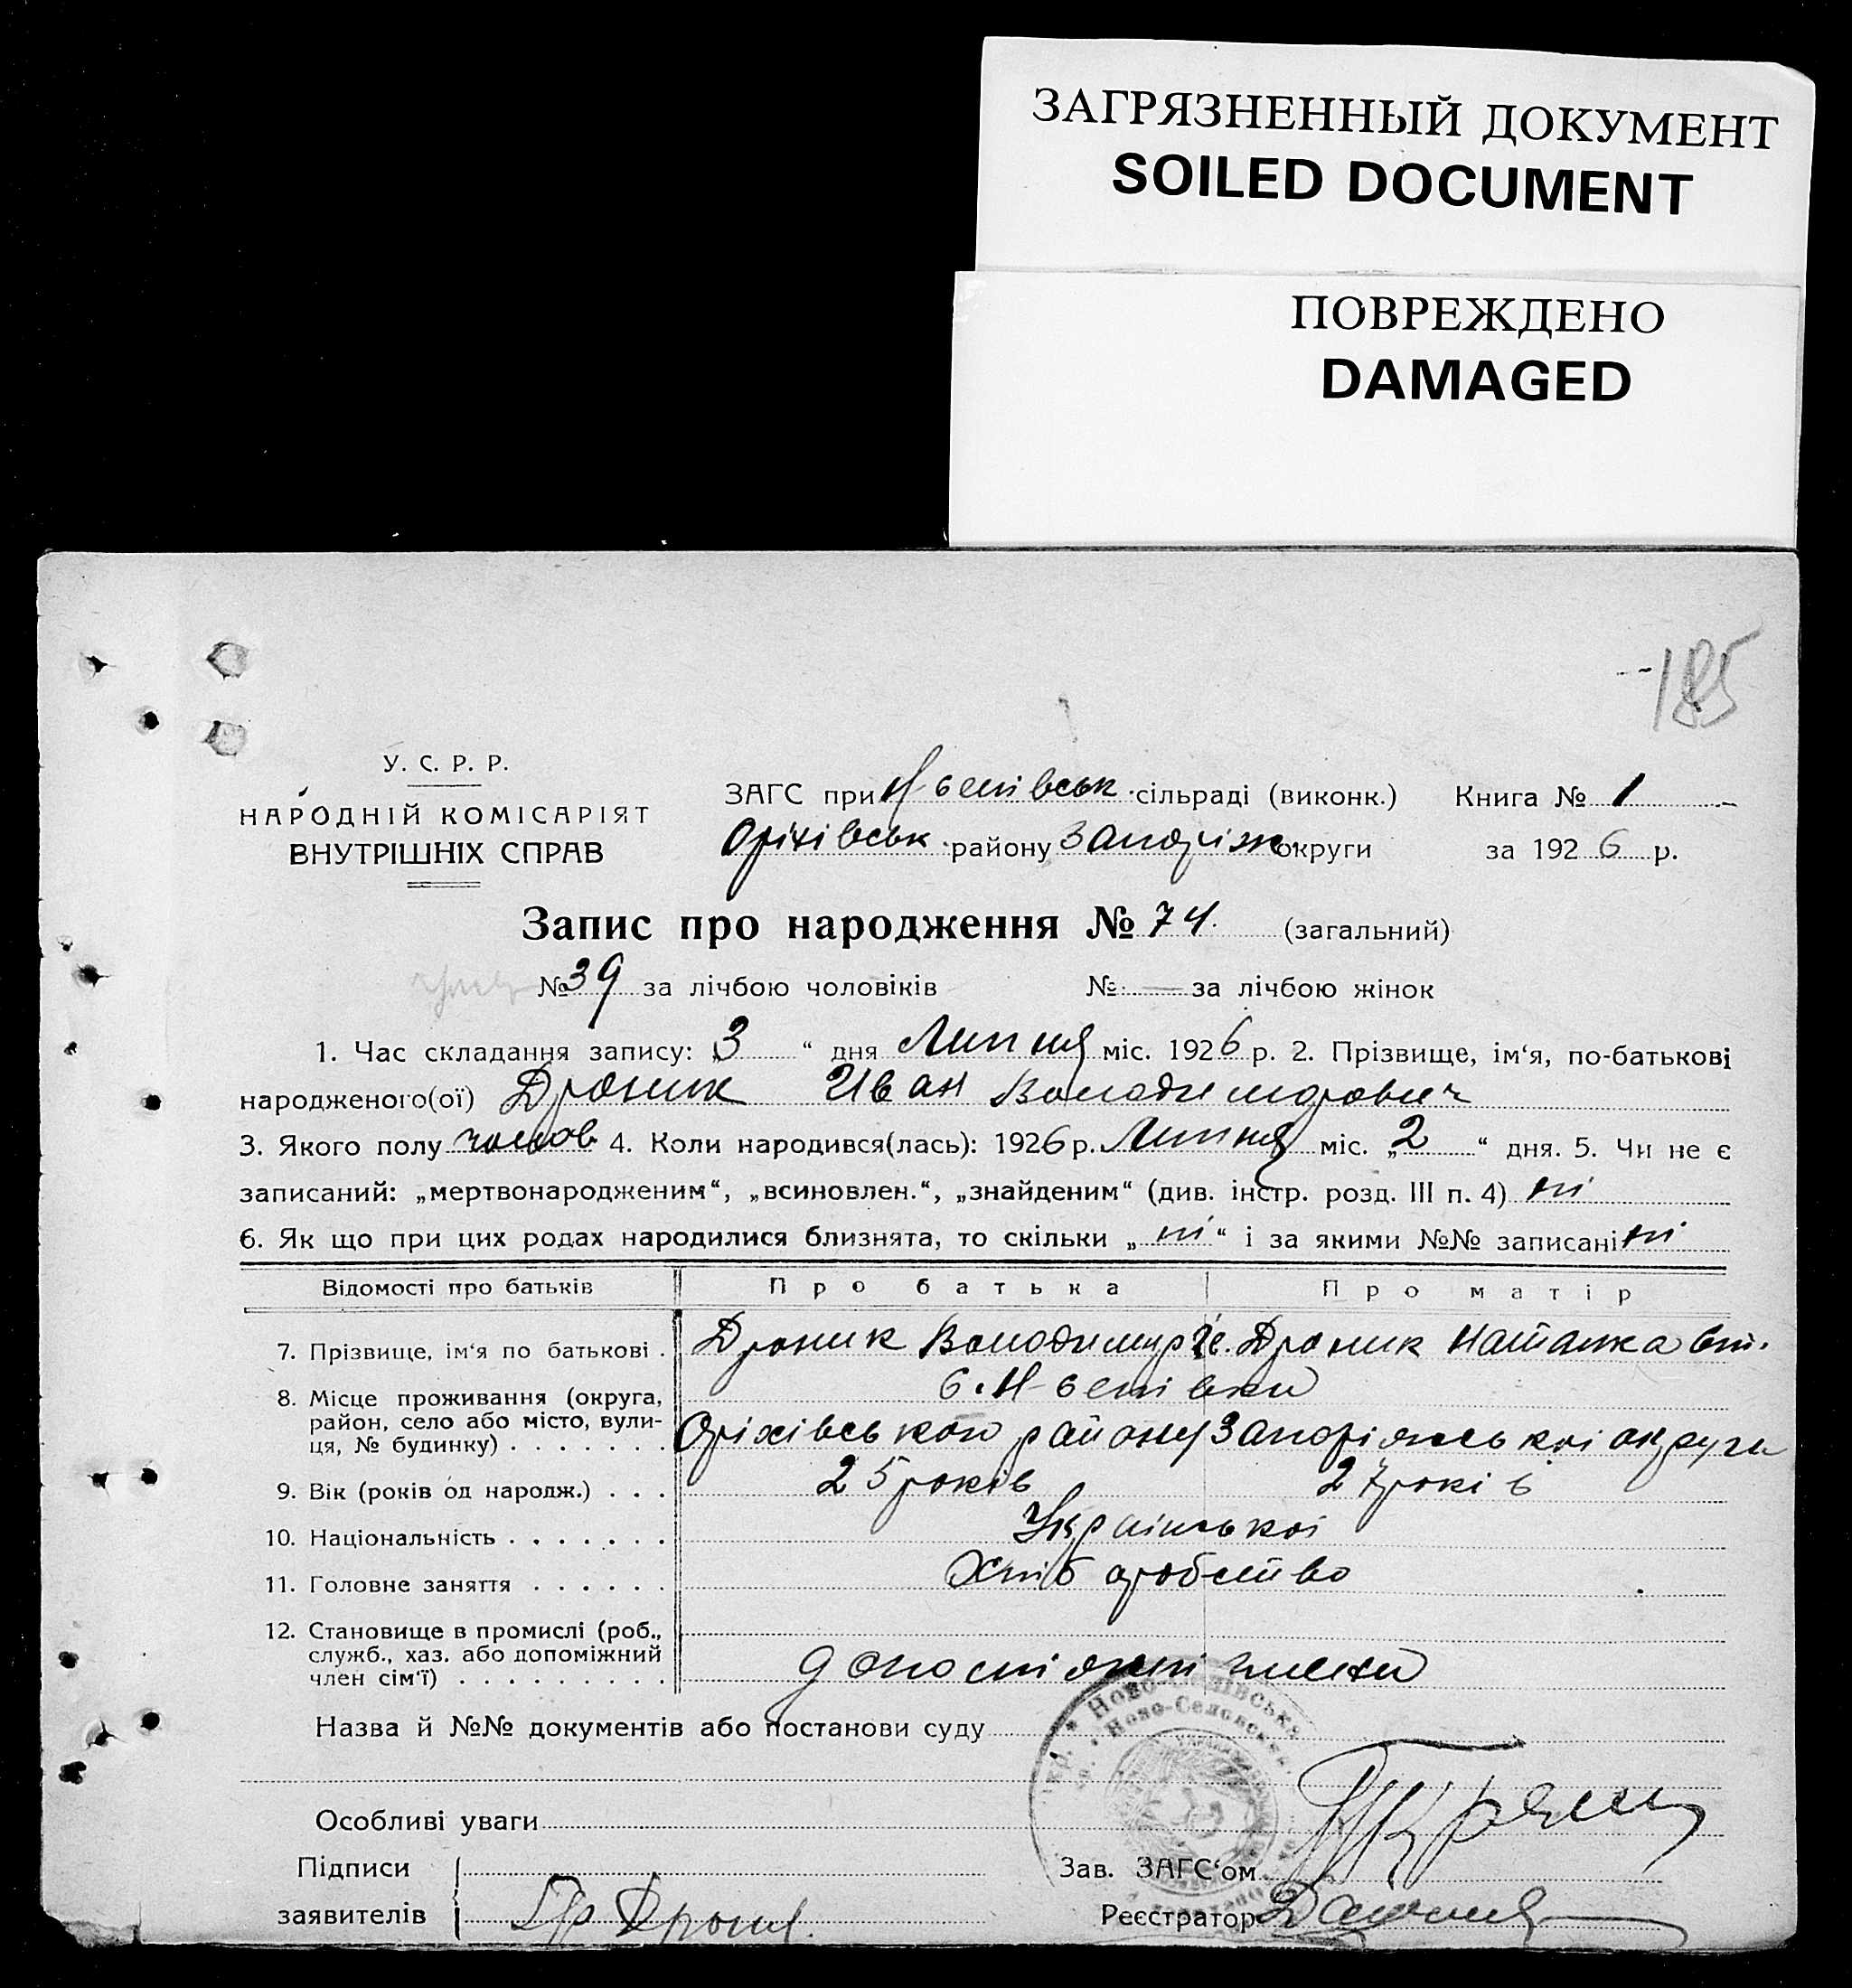 ЗАГРЯЗНЕННЫЙ ДОКУМЕНТ
SOILED DOCUMENT
ПОВРЕЖДЕНО
DAMAGED
185
У. С. Р. Р.
НАРОДНІЙ КОМІСАРІЯТ
ВНУТРІШНІХ СПРАВ
ЗАГС при сільраді (виконк.) Книга № 1
Оріхівськ. району Запоріж. округи за 1926 р.
Запис про народження № 74. (загальний)
№ 39 за лічбою чоловіків № — за лічбою жінок
1. Час складання запису: „3“ дня Липня міс. 1926 р. 2. Прізвище, ім‘я, по-батькові
народженого(ої) Дроник Иван Володимирович
3. Якого полу чолов. 4. Коли народився(лась): 1926 р. Липня міс. „2“ дня. 5. Чи не є
записаний: „мертвонародженим“, „всиновлен.“, „знайденим“ (див. інстр. розд. III п. 4) ні
6. Як що при цих родах народилися близнята, то скільки „ні“ і за якими №№ записані ні
Відомості про батьків Про батька Про матір
7. Прізвище, ім‘я по батькові . Дроник Володимир Дроник Наталка
8. Місце проживання (округа,
район, село або місто, вули-
ця, № будинку) . . . . . . . Оріхівського району Запоріжської округи
9. Вік (років од народж.) . . . 25 років 27 років
10. Національність . . . . . . . Української
11. Головне заняття . . . . . . Хліборобство
12. Становище в промислі (роб.,
служб., хаз. або допоміжний
член сім‘ї) . . . . . . . . . члени
Назва й №№ документів або постанови суду
Ново-Селівська
Особливі уваги
Підписи
заявителів
Зав. ЗАГС‘ом
Реєстратор